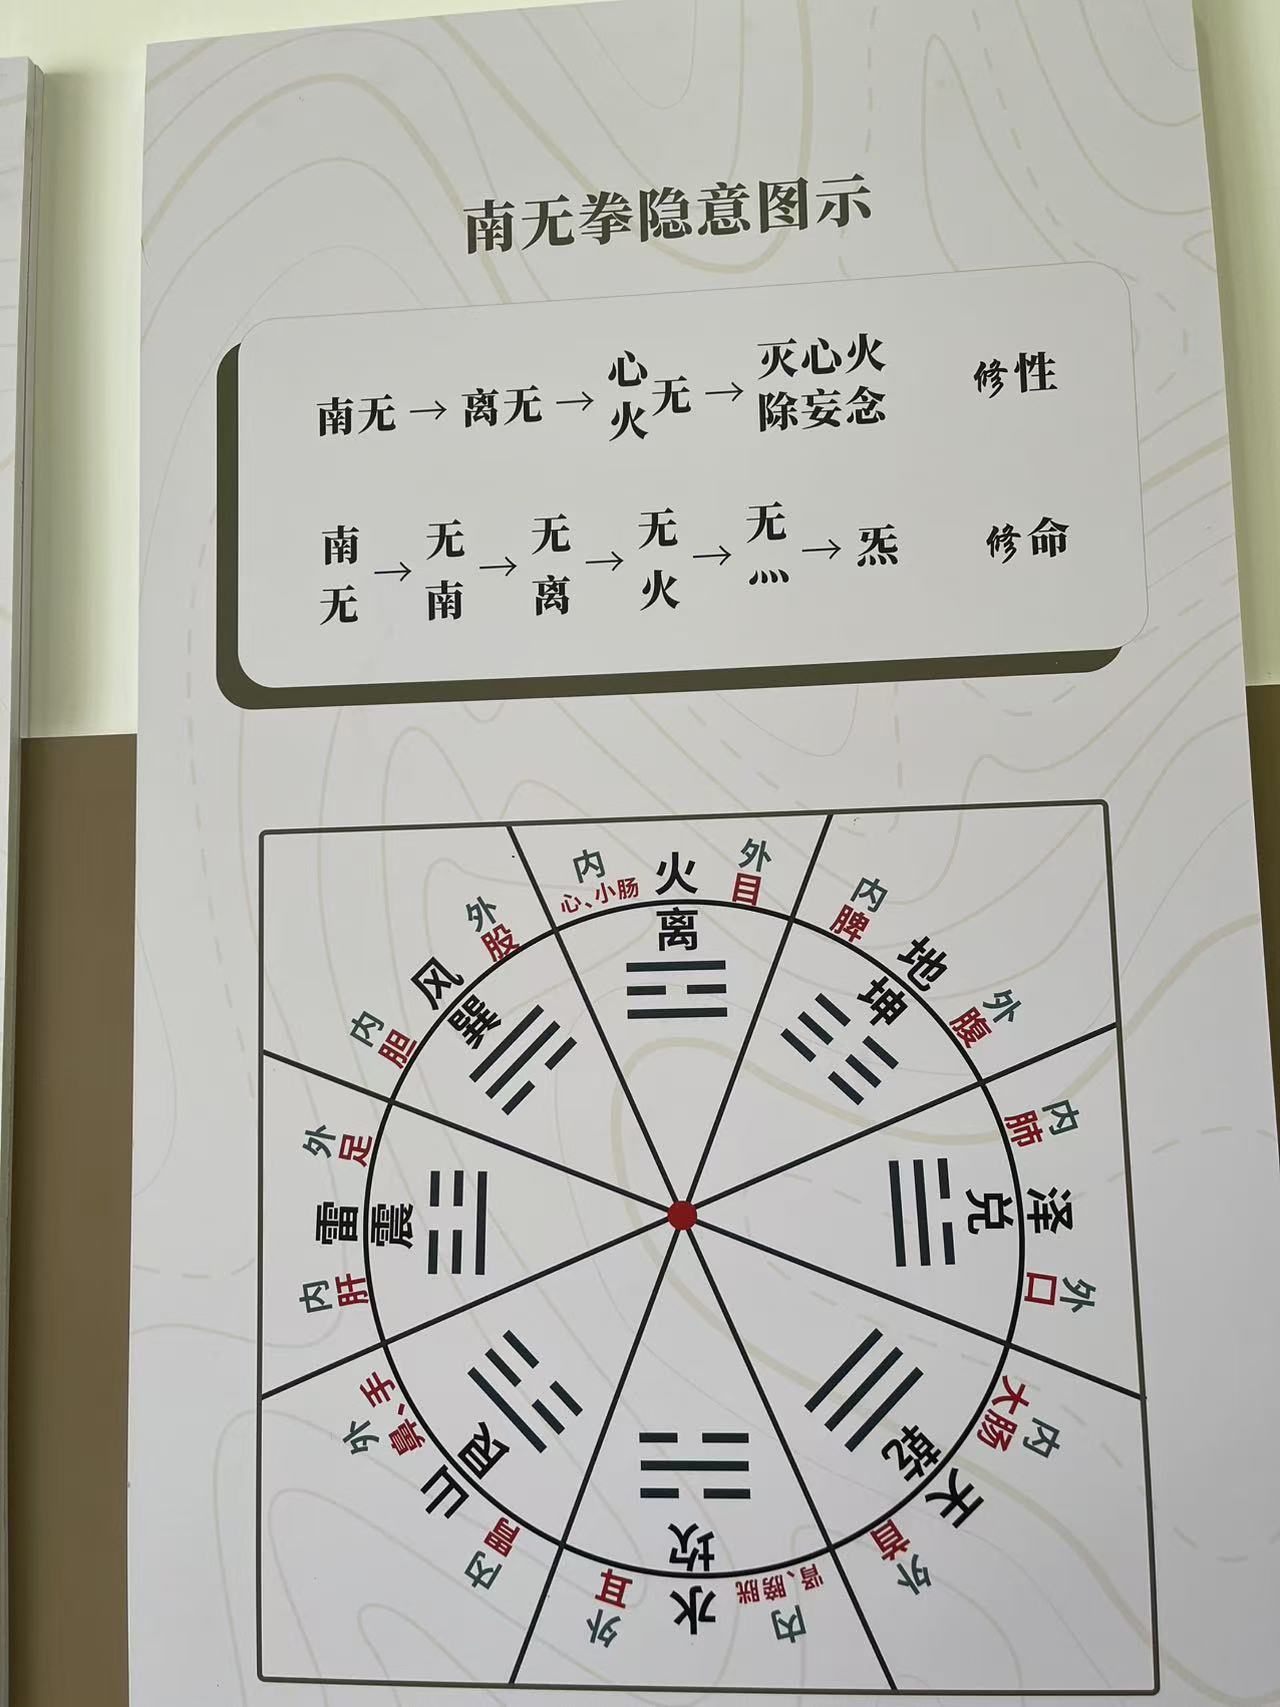 南无拳隐意图示
南无→离无→心火无→灭心火除妄念 修性
南无→无南→无离→无火→无灬→炁 修命
内 心、小肠 火 离 外 目
内 脾 地 坤 外 腹
内 肺 泽 兑 外 口
内 大肠 天 乾 外 首
内 肾、膀胱 水 坎 外 耳
内 胃 山 艮 外 鼻、手
内 肝 雷 震 外 足
内 胆 风 巽 外 股